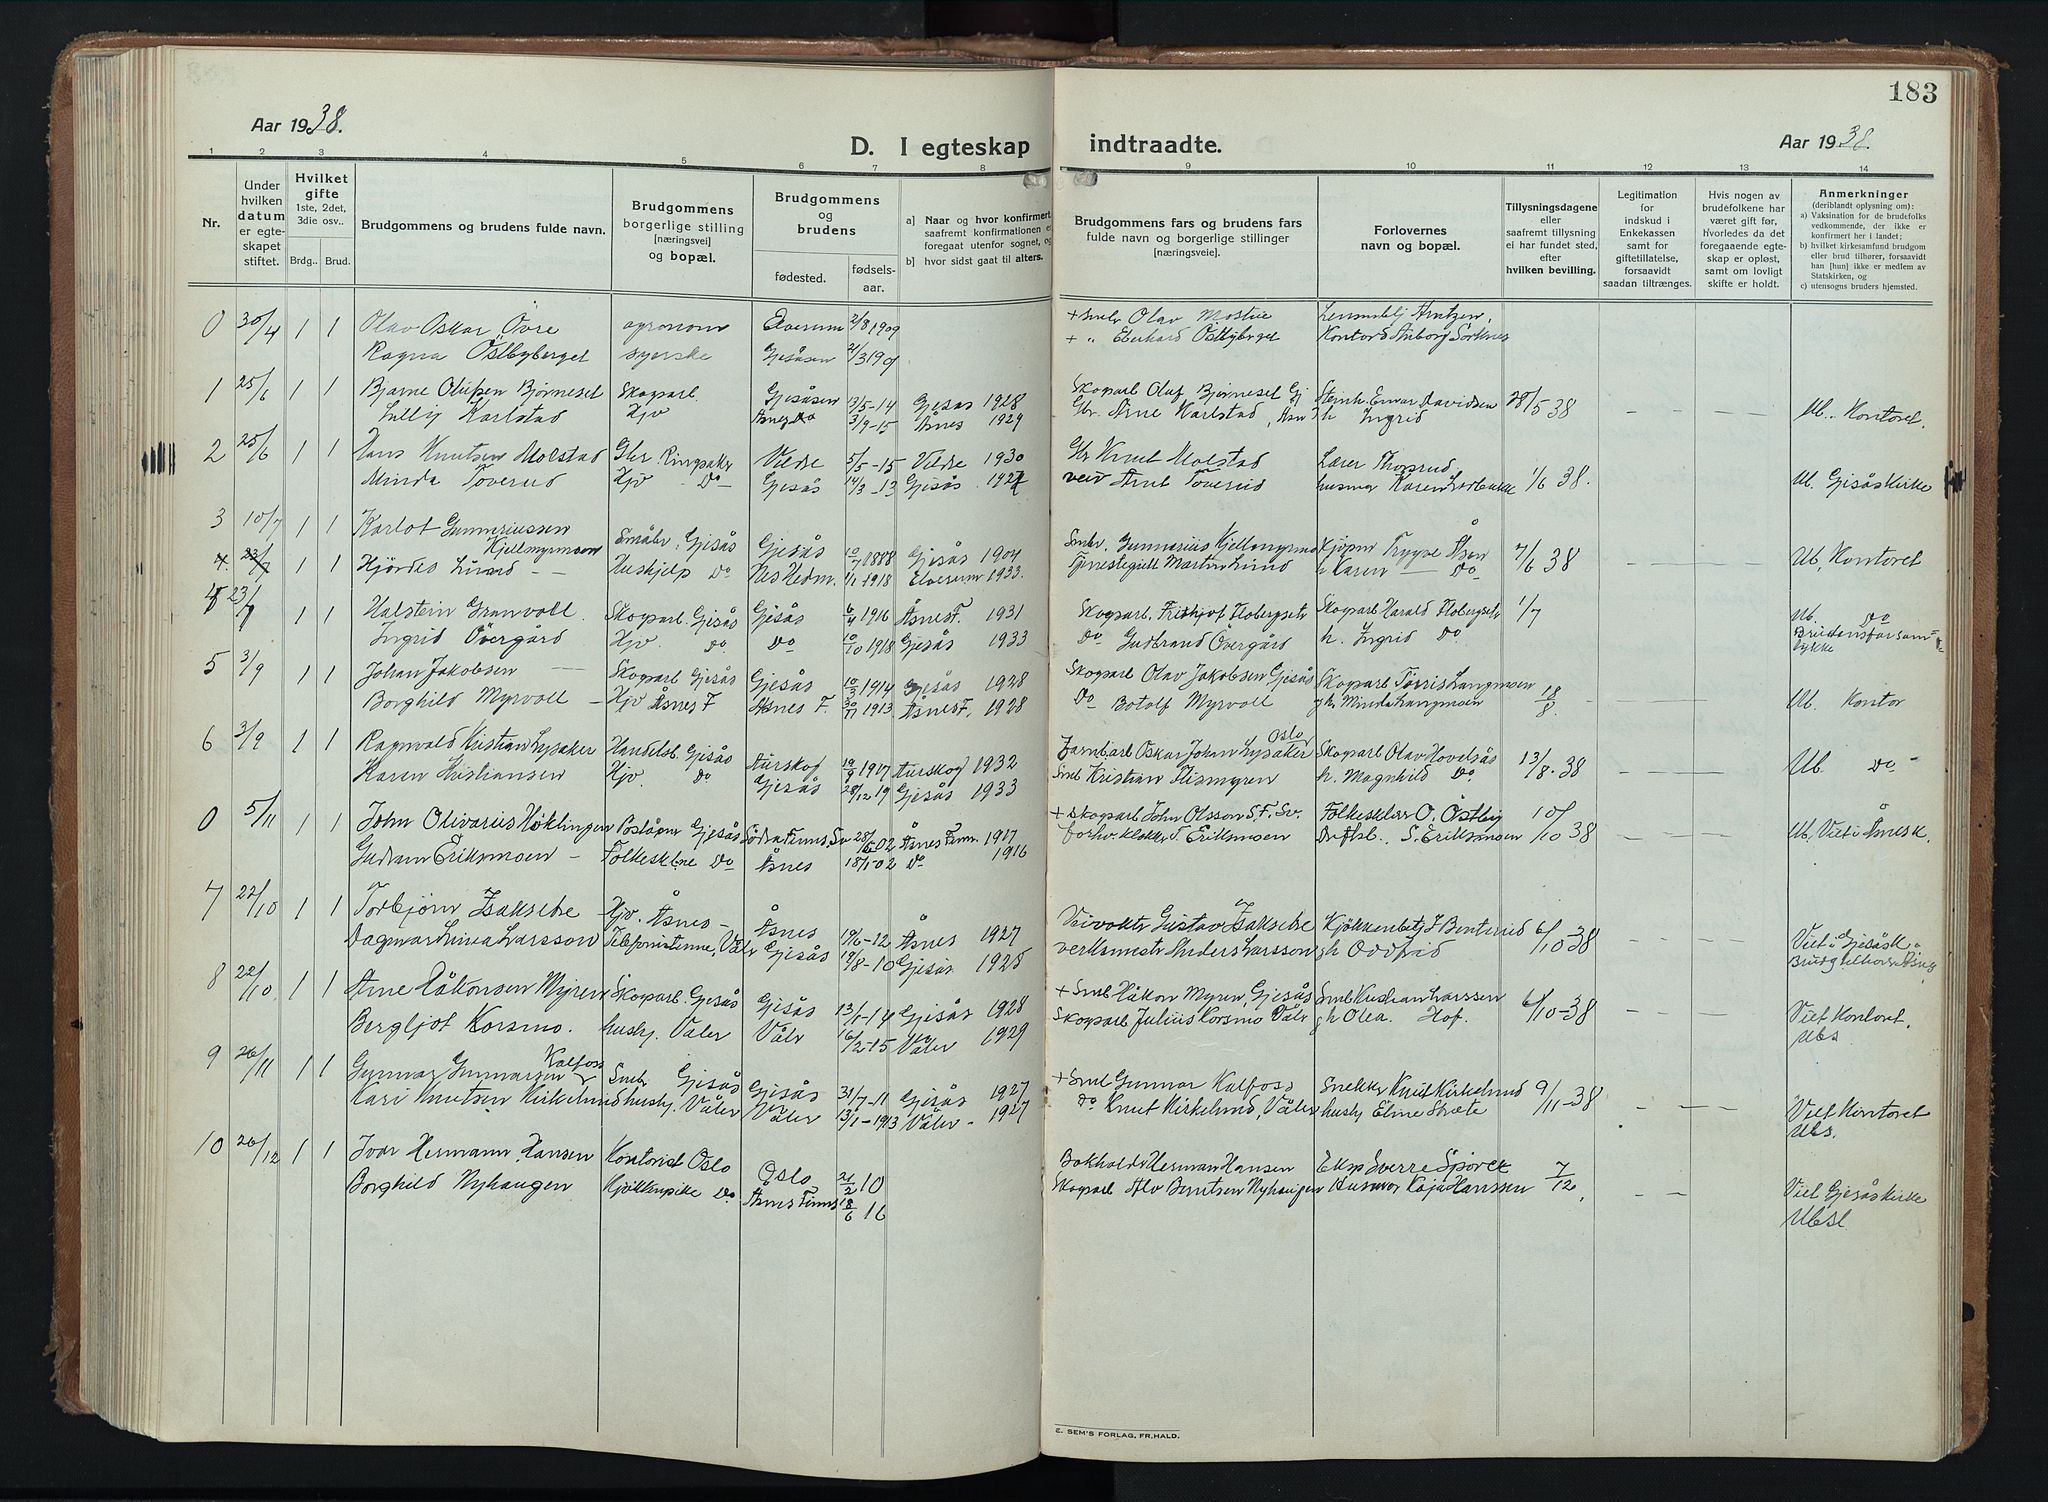 183
Aar 1938.
D. I egteskap indtraadte.
Aar 1938.
1 2 3 4 5 6 7 8 9 10 11 12 13 14
Nr.
Under hvilken datum er egteskapet stiftet.
Hvilket gifte 1ste, 2det, 3die osv..
Brdg.. Brud.
Brudgommens og brudens fulde navn.
Brudgommens borgerlige stilling [næringsvei] og bopæl.
Brudgommens og brudens
fødested. fødsels-aar.
a] Naar og hvor konfirmert saafremt konfirmationen e foregaat utenfor sognet, og
b] hvor sidst gaat til alters.
Brudgommens fars og brudens fars fulde navn og borgerlige stillinger [næringsveie].
Forlovernes navn og bopæl.
Tillysningsdagene eller saafremt tillysning ei har fundet sted, efter hvilken bevilling.
Legitimation for indskud i Enkekassen samt for giftetillatelse, forsaavidt saadan tiltrænges.
Hvis nogen av brudefolkene har været gift før, hvorledes da det foregaaende egteskap er opløst, samt om lovligt skifte er holdt.
Anmerkninger (deriblandt oplysning om):
a) Vaksination for de brudefolks vedkommende, der ikke er konfirmert her i landet;
b) hvilket kirkesamfund brudgom eller brud tilhører, forsaavidt han [hun] ikke er medlem av Statskirken, og
c) utensogns bruders hjemsted.
0 30/4 1 1 Olav Oskar Övre agronom Elverum 2/8 1909 + Smbr Olav Mostue Lensmbtj Arntzen,
Ragna Östbyberget syerske Gjesåsen + " Eberhard Östbyberget
1 25/6 1 1 Bjarne Olufsen Bjørneset Skogarb. Gjesåsen 13/5-14 Gjesås 1928 Skogarb Oluf Bjørneset Gj Einar Davidsen 28/5 38
Karlstad Hjv 3/9-15 Åsnes 1929 Gbr. Arne Karlstad, h Ingrid Ub. Kontoret.
2 25/6 1 1 Hans Knutsen Molstad Gbr. Ringsaker 5/5-15 1930 Gbr Knut Molstad Lærer
Minda Toverud Hjv Do Gjesås 14/3-13 Gjesås Arnt Toverud husmor Karen 1/6 38. U. Gjesåskirke
3 10/7 1 1 Karlot Gunnariussen
Kjellmyrmoen Småbr. Gjesås Gjesås 10/7 1888 Gjesås 1904 Smbr. Gunnarius Kjellmyrmo Kjøpm Trygve Åsen 7/6 38 Ub. Kontoret
4. 23/7 1 1 Hjördis Lund Hushjelp Do Nes Hedm. 4/1 1918 Elverum 1933. Martin Lund h Karen Do
4 23/7 1 1 Halstein Granvoll Skogarb. Gjesås Gjesås 6/4 1916 Åsnes F. 1931 Skogarb. Fridtjof Flobergseter Skogarb Harald Flobergsetr 1/7 Ub. Do
Ingrid Övergård Hjv. Do Do 10/10 1918 Gjesås 1933 Do Gudbrand Övergård h. Ingrid Do Brudens forsamtykke
5 3/9 1 1 Johan Jakobsen Skogarb Gjesås Gjesås 10/3 1914 Gjesås 1928 Skogarb Olav Jakobsen Gjesås Skogarb Torris Langmoen 18/8
Borghild Myrvoll Hjv Åsnes F Åsnes F. 30/11 1913 Åsnes F. 1928 Do Botolf Myrvoll gh. Minda Langmoen Ub. Kontor
6 3/9 1 1 Ragnvald Kristian Lysaker Handelsb. Gjesås Aurskog 19/9 1907 Aurskog 1932 Jarnbarb Oskar Johan Lysaker Oslo Skogarb Olav Hovelsås 13/8.38 Ub. Do
Karen Kristiansen Hjv. Do Gjesås 28/12 19 Gjesås 1933 Smb Kristian h. Magnhild Do
0 5/11 1 1 John Olivarius Höklingen Poståpnr Gjesås Södra Finns. Sv 28/5 02 Åsnes Finn. 1917 + Skogarb John Olsson S.F. Sv. Folkeskler O. Östby 10/10 38
Gudrun Eriksmoen Folkesklne Do Åsnes 18/1-02 Do 1916 forhv. klokker T. Eriksmoen S. Eriksmoen Ub. Viet i Åsnes k.
7 22/10 1 1 Torbjörn Isaksetre Hjv. Åsnes Åsnes 19/6-12 Åsnes 1927 Veivoktr Gustav Isaksetre 6/10 38
Dagmar Linea Larsson Telefonistinne, Våler Gjesås 19/8-10 Gjesås 1925 verksmestr Anders Larsson gh Oddfrid Viet i Gjesås k.
8 22/10 1 1 Arne Håkonsen Myren Skogarb. Gjesås Gjesås 13/1-14 Gjesås 1928 + Smb Håkon Myren, Gjesås Smb Kristian Larssen 6/10-38
Bergljot Korsmo. hushj. Våler Våler 16/2-15 Våler 1929 Skogarb Julius Korsmo Våler gh Olea. Hof. Viet Kontoret. Ubs.
9 26/11 1 1 Gunnar Gunnarsen Kalfoss Smbr Gjesås Gjesås 31/7-11 Gjesås 1927 + Smb Gunnar Kalfoss Snekker Knut Kirkelund 9/11-38
Kari Knutsen Kirkelund hushj. Våler Våler 13/1-1913 Våler 1927 Do Knut Kirkelund, Våler hushj Eline Sæte Viet Kontoret Ubs.
10 26/12 1 1 Ivar Hermann Hansen Kontorist Oslo Oslo 21/2 10 Bokholdr Herman Hansen Eksp Sverre Spörck 7/12
Borghild Nyhaugen Kjökkenpike Do Åsnes Finns 18/6 16 Skogarb Alv Berntsen Nyhaugen Husmor Kaja Hanssen Viet Gjesåskirke Ubsl
E. SEM'S FORLAG, FR.HALD.